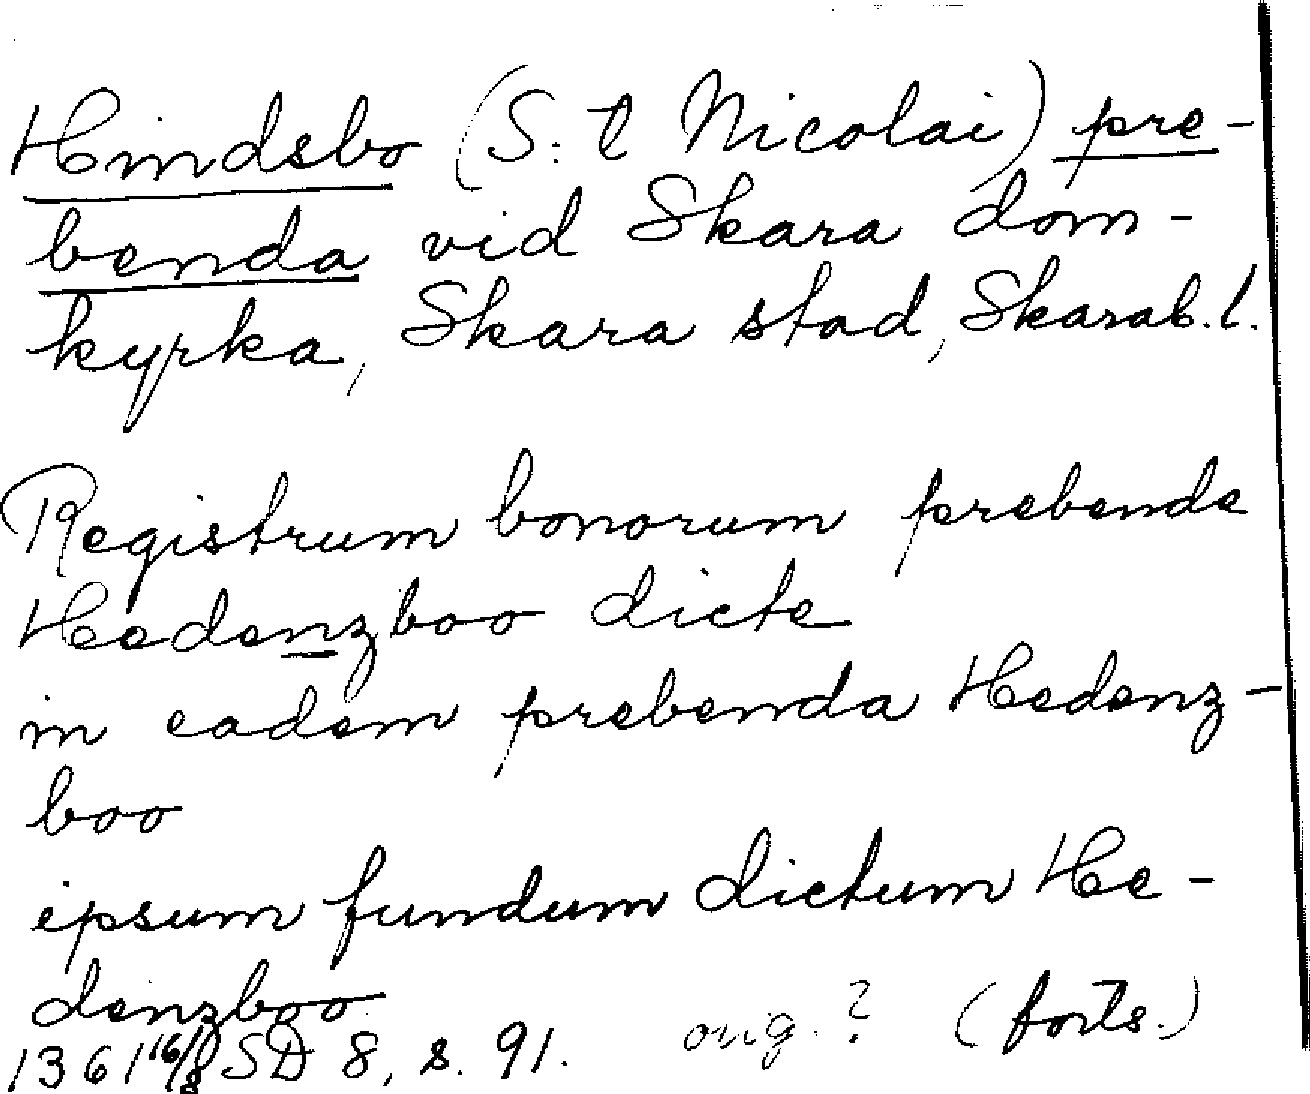 Hindsbo (S:t Nicolai) pre-
benda vid Skara dom-
kyrka, Skara stad, Skarab.l.
Registrum bonorum prebende
Hedenzboo dicte
in eadem prebenda Hedenz-
boo
ipsum fundum dictum He-
denzboo
1361 16/8 SD 8, s. 91. orig.? (forts.)